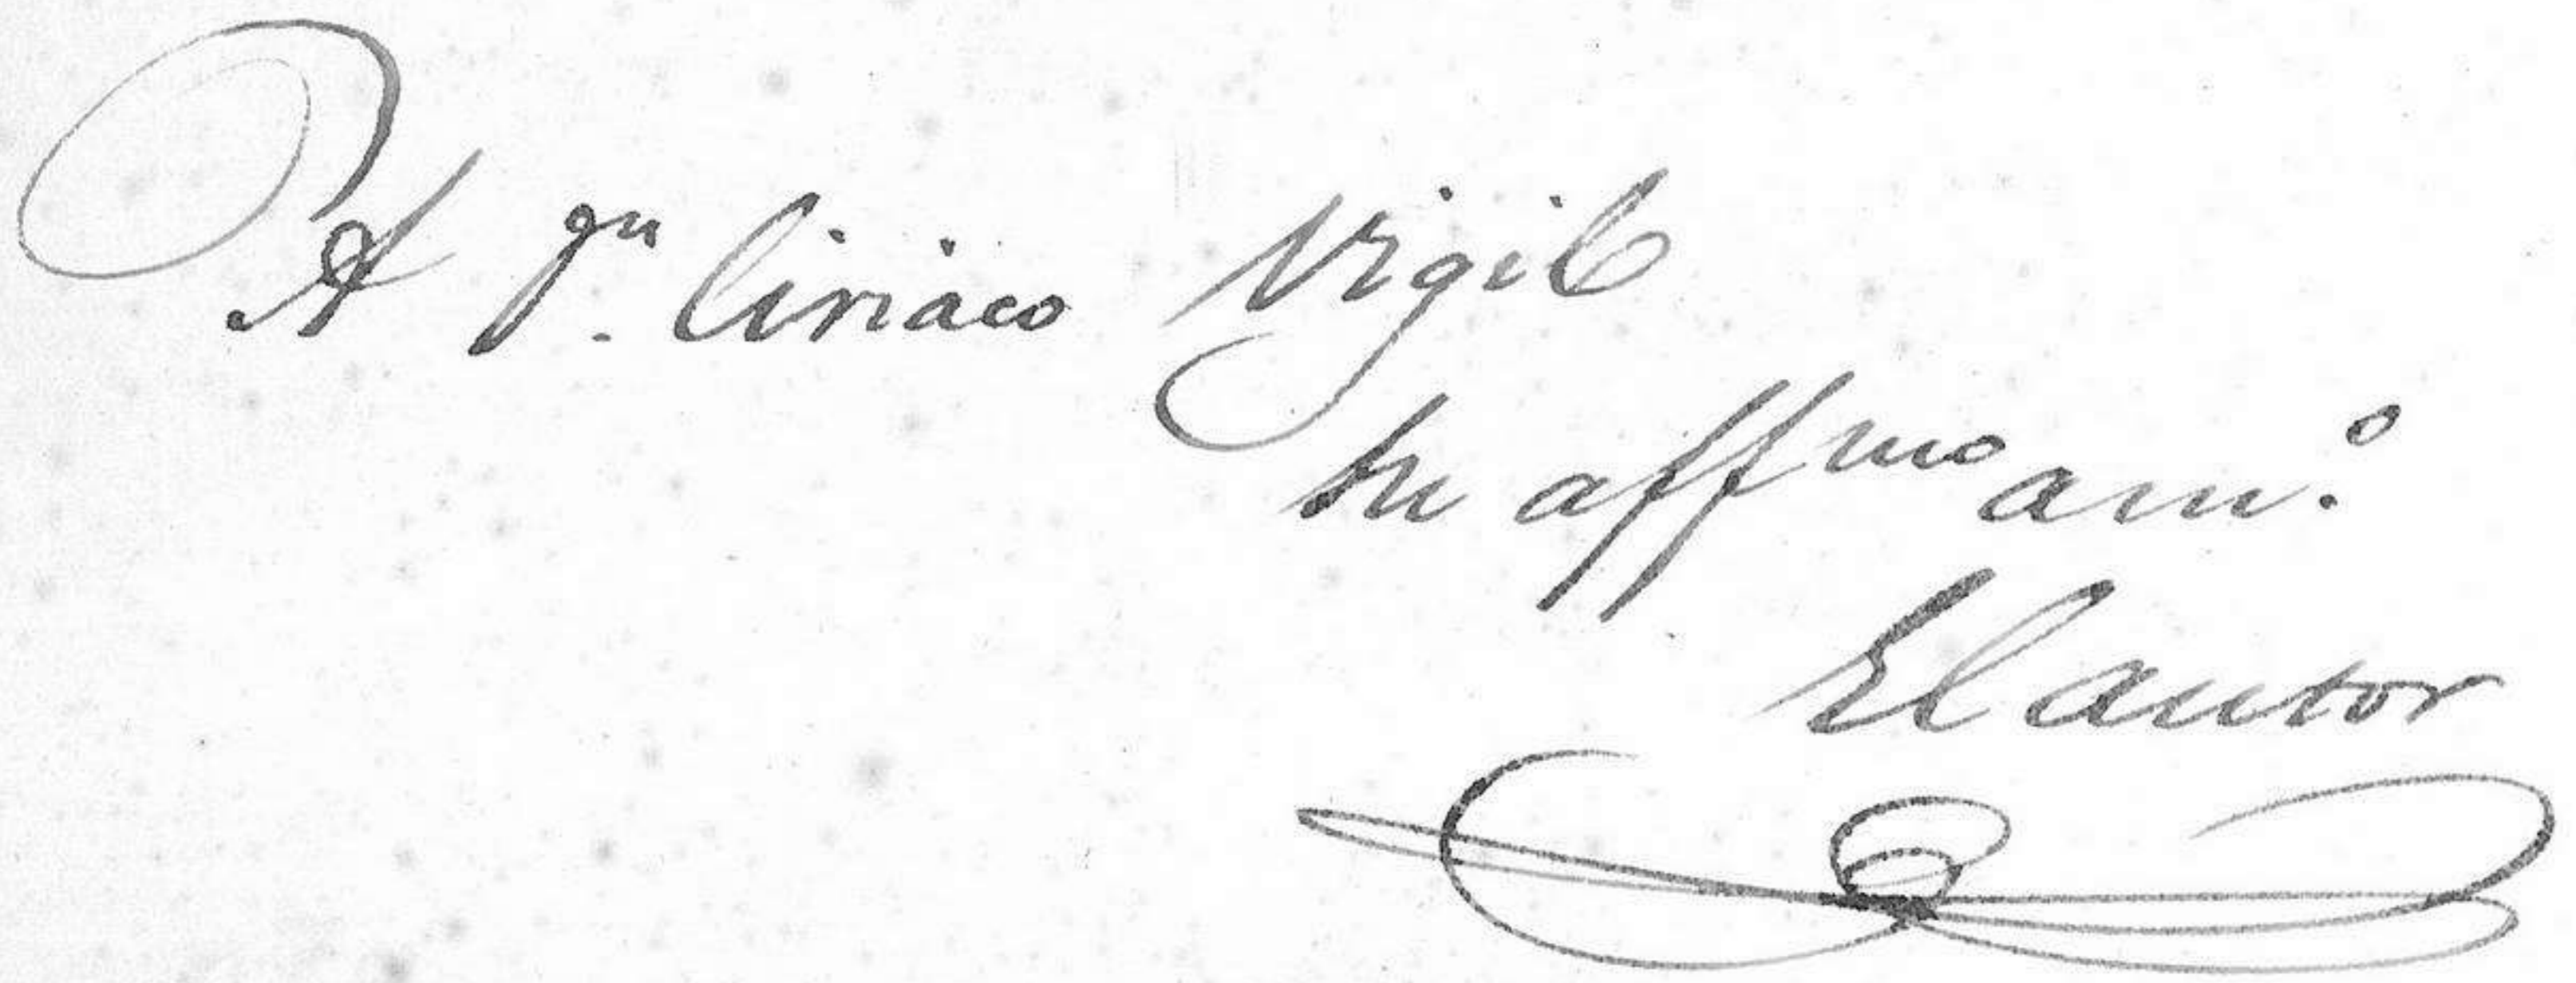 A Dn. Ciriaco Vigil
Su affmo am.o
El autor